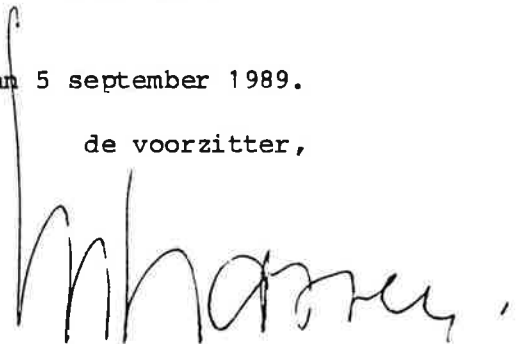 5 september 1989.
de voorzitter,